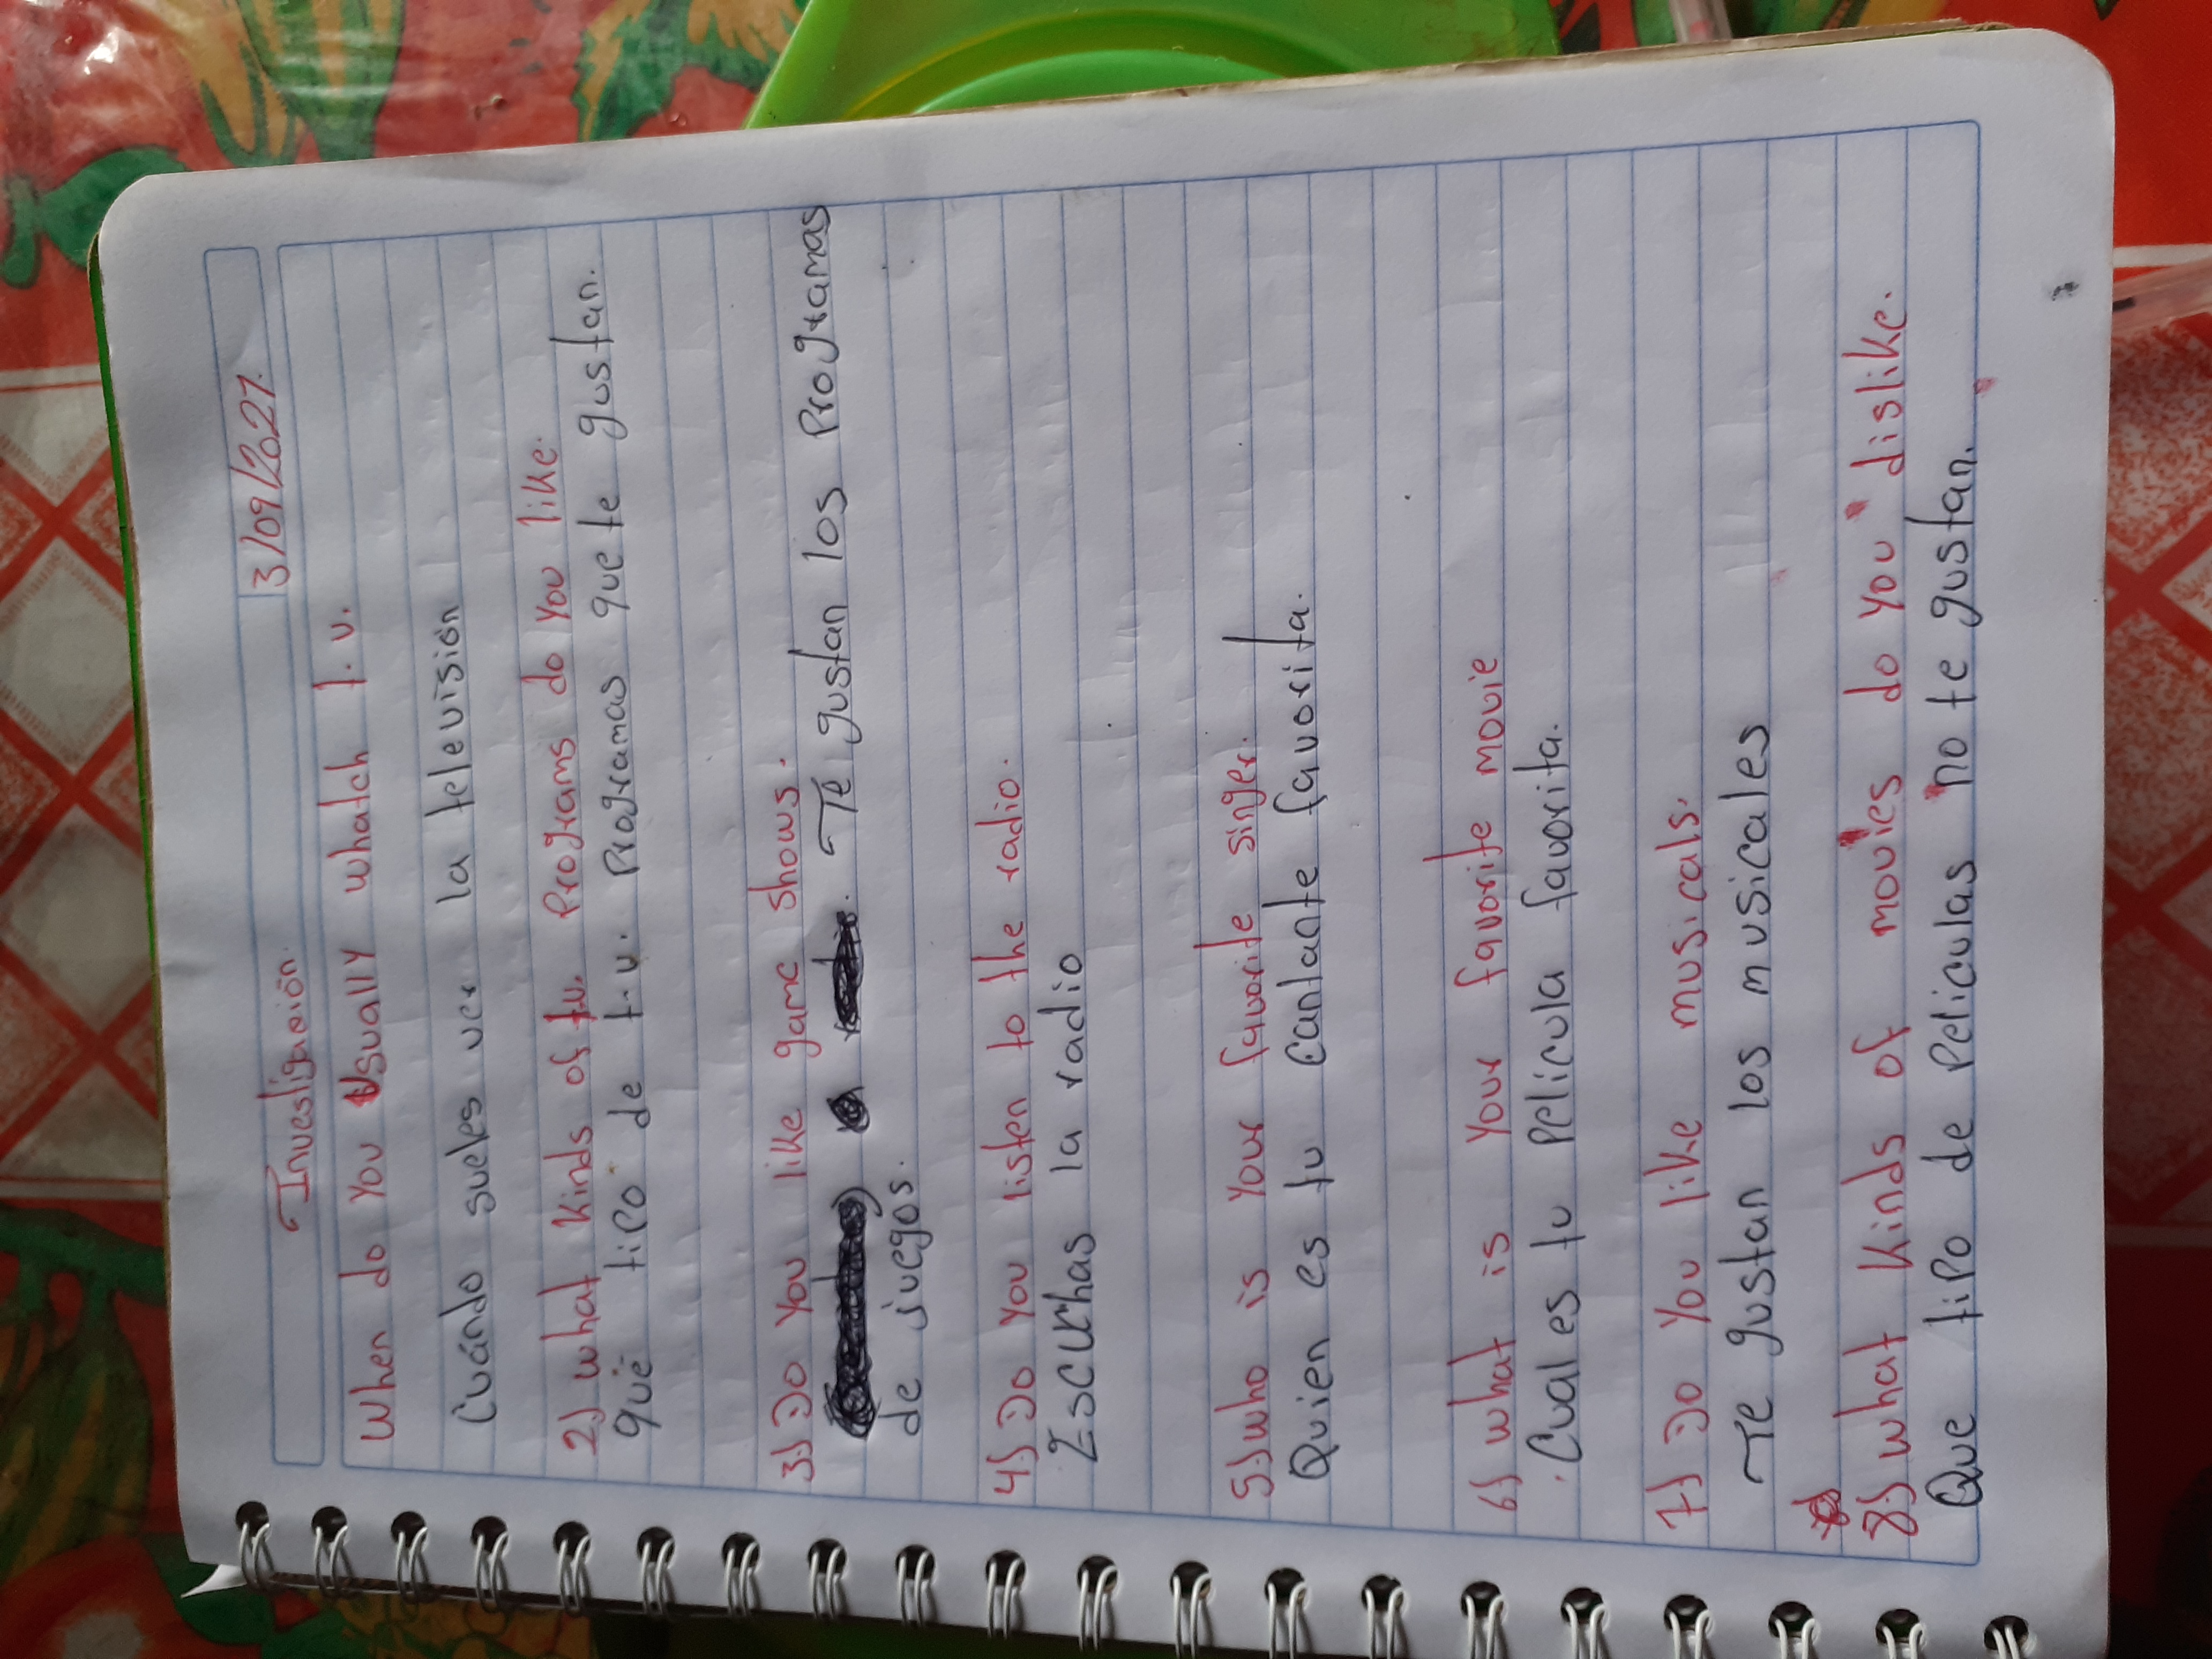 Investigaión.
3/09/2021.
When do You Usually whatch t.v.
Cuándo sueles ver la televisión
2) what kinds of tv. Programs do You like.
qué tipo de t.v. Programas que te gustan.
3) Do You like game shows.
Te gustan los Programas
de juegos.
4) Do You listen to the radio.
Escuchas la radio
5) who is Your favorite singer.
Quien es tu cantante favorita.
6) what is Your favorite movie
Cual es tu Pelicula favorita.
7) Do You like musicals.
Te gustan los musicales
8) what kinds of movies do You dislike.
Que tipo de Peliculas no te gustan.